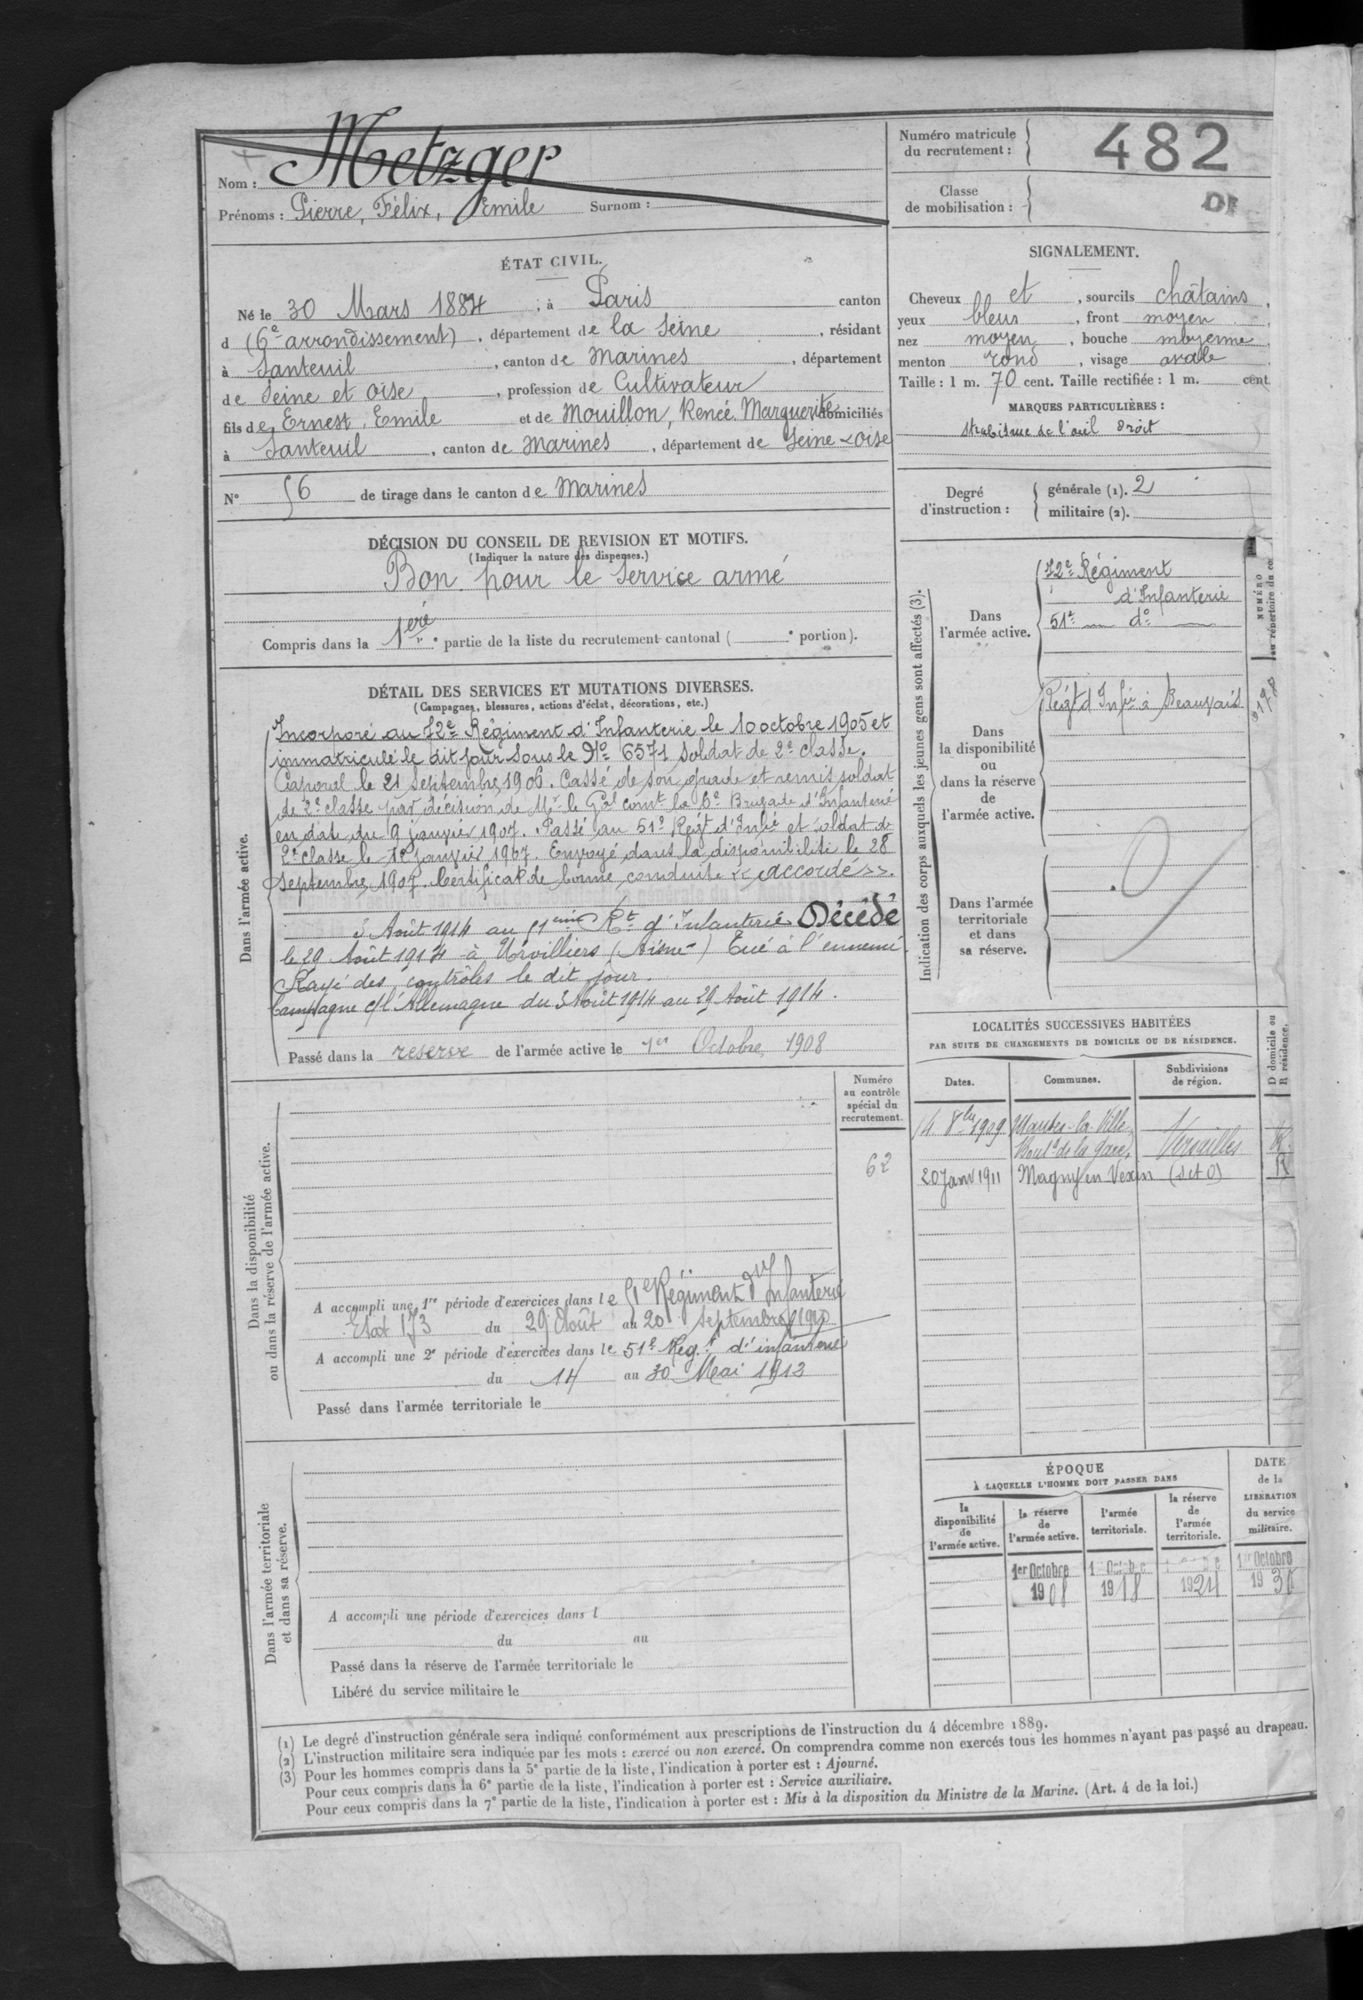 Nom : Metzger
Prénoms : Pierre, Félix, Emile Surnom :
Numéro matricule du recrutement : 482
Classe de mobilisation :
ÉTAT CIVIL.
Né le 30 Mars 1884, à Paris canton
d (6e arrondissement), département de la Seine, résidant
à Santeuil, canton de Marines, département
de Seine et Oise, profession de Cultivateur
fils de Ernest, Emile et de Mouillon, Renée Marguerite domiciliés
à Santeuil, canton de Marines, département de Seine & Oise
N° 56 de tirage dans le canton de Marines
SIGNALEMENT.
Cheveux et, sourcils châtains,
yeux bleus, front moyen,
nez moyen, bouche moyenne,
menton rond, visage ovale
Taille : 1 m. 70 cent. Taille rectifiée : 1 m. cent.
MARQUES PARTICULIÈRES :
strabisme de l'œil droit
Degré d'instruction : générale (1). 2
militaire (2).
DÉCISION DU CONSEIL DE REVISION ET MOTIFS.
(Indiquer la nature des dispenses.)
Bon pour le service armé
Compris dans la 1ère partie de la liste du recrutement cantonal ( e portion).
DÉTAIL DES SERVICES ET MUTATIONS DIVERSES.
(Campagnes, blessures, actions d'éclat, décorations, etc.)
Dans l'armée active.
Incorporé au 72e Régiment d'Infanterie le 10 octobre 1905 et
immatriculé le dit jour sous le No 6571 soldat de 2e classe.
Caporal le 21 Septembre 1906. Cassé de son grade et remis soldat
de 2e classe par décision de Mr le Gal Comt la 6e Brigade d'Infanterie
en date du 9 janvier 1907. Passé au 51e Régt d'Infie et soldat de
2e classe le janvier 1907. Envoyé dans la disponibilité le 28
Septembre 1907. Certificat de bonne conduite « accordé ».
3 Août 1914 au 51ème Rt d'Infanterie Décédé
le 29 Août 1914 à Urvilliers (Aisne) Tué à l'ennemi
Rayé des contrôles le dit jour.
Campagne c/ l'Allemagne du 3 Août 1914 au 29 Août 1914.
Passé dans la reserve de l'armée active le 1er Octobre 1908
Indication des corps auxquels les jeunes gens sont affectés (3).
Dans l'armée active.
72e Régiment
d'Infanterie
51e do
NUMÉRO
au répertoire du
Dans la disponibilité ou dans la réserve de l'armée active.
Régt d'Infie à Beauvais
Dans l'armée territoriale et dans sa réserve.
LOCALITÉS SUCCESSIVES HABITÉES
PAR SUITE DE CHANGEMENTS DE DOMICILE OU DE RÉSIDENCE.
Dates. Communes. Subdivisions de région. D domicile ou R résidence.
14 8bre 1909 Mantes-la-Ville Versailles R.
Bould de la Gare,
20 Janv 1911 Magny en Vexin (S et O) R
Dans la disponibilité ou dans la réserve de l'armée active.
Numéro au contrôle spécial du recrutement.
62
A accompli une 1re période d'exercices dans le 51e Régiment d'Infanterie
Etat 173 du 29 Août au 20 septembre 1910
A accompli une 2e période d'exercices dans le 51e Régt d'infanterie
du 14 au 30 Mai 1913
Passé dans l'armée territoriale le
Dans l'armée territoriale et dans sa réserve.
A accompli une période d'exercices dans l
du au
Passé dans la réserve de l'armée territoriale le
Libéré du service militaire le
ÉPOQUE
À LAQUELLE L'HOMME DOIT PASSER DANS
la disponibilité de l'armée active. la réserve de l'armée active. l'armée territoriale. la réserve de l'armée territoriale. DATE de la LIBÉRATION du service militaire.
1er Octobre 1908 1er Octobre 1918 1924 1er Octobre 1930
(1) Le degré d'instruction générale sera indiqué conformément aux prescriptions de l'instruction du 4 décembre 1889.
(2) L'instruction militaire sera indiquée par les mots : exercé ou non exercé. On comprendra comme non exercés tous les hommes n'ayant pas passé au drapeau.
(3) Pour les hommes compris dans la 5e partie de la liste, l'indication à porter est : Ajourné.
Pour ceux compris dans la 6e partie de la liste, l'indication à porter est : Service auxiliaire.
Pour ceux compris dans la 7e partie de la liste, l'indication à porter est : Mis à la disposition du Ministre de la Marine. (Art. 4 de la loi.)